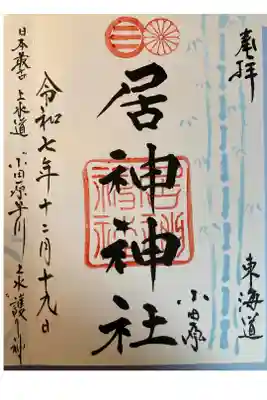 奉拝
東海道
小田原
居神神社
令和七年十二月十九日
日本最古 上水道 小田原早川上水 護り神